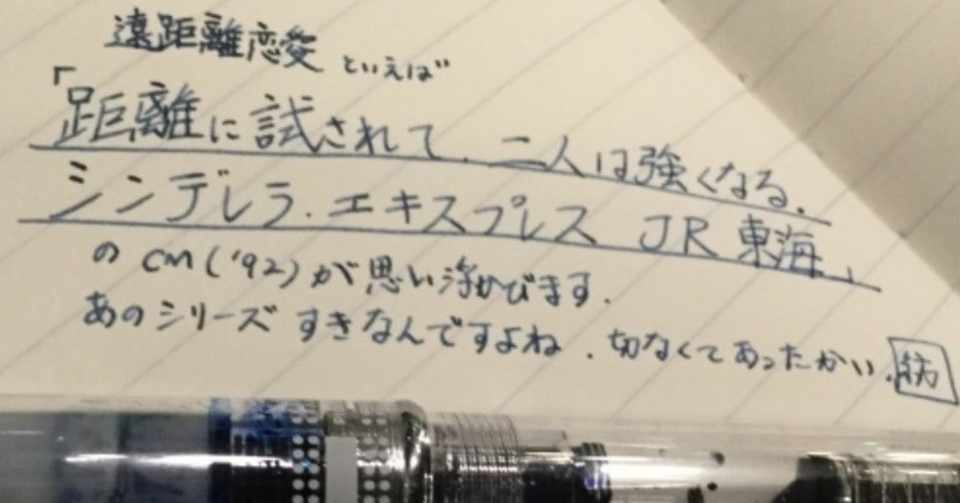 遠距離恋愛といえば
「距離に試されて、二人は強くなる.
シンデレラ.エキスプレス JR東海、
のCM('92)が思い浮かびます.
あのシリーズすきなんですよね.切なくてあったかい.